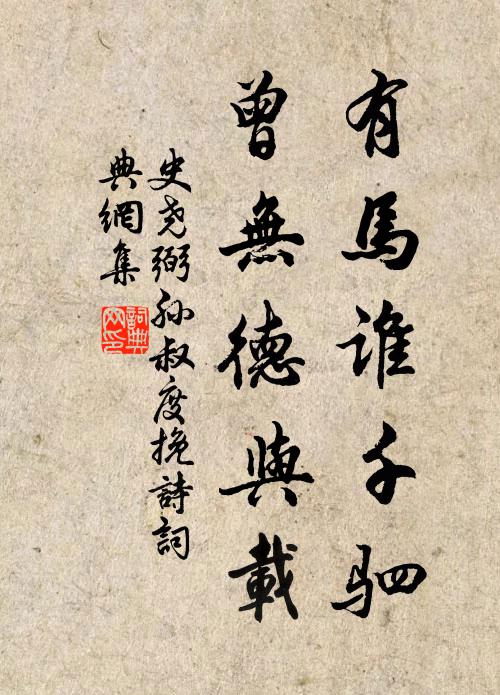 有馬誰千驷
曾無德與載
史尧弼孙叔度挽詩詞
典網集
詞典網印